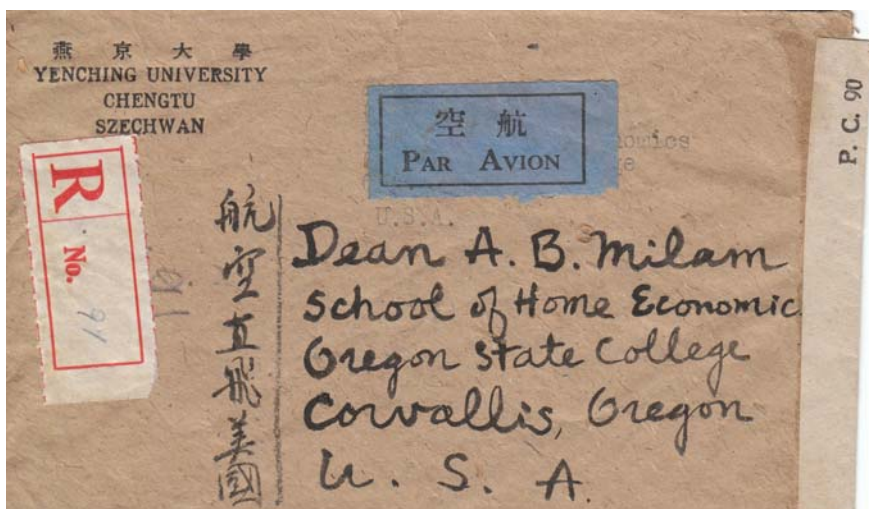 燕京大學
YENCHING UNIVERSITY
CHENGTU
SZECHWAN
空航
PAR AVION
U.S.A.
R
No.
航空直飛美國
Dean A. B. Milam
School of Home Economic
Oregon State College
Corvallis, Oregon
U. S. A.
P. C. 90